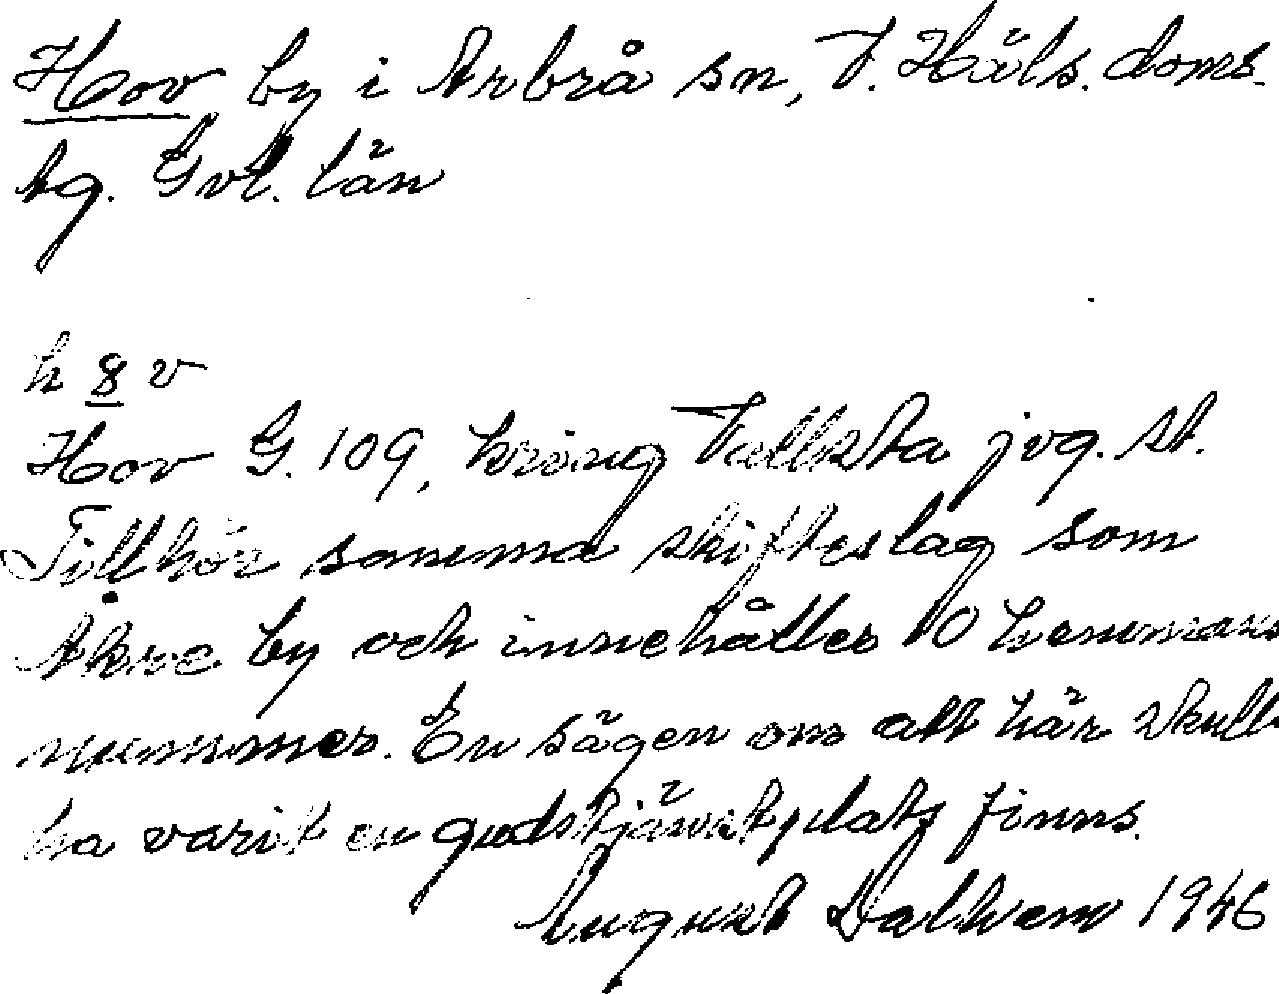 Hov by i Arbrå sn, V. Häls. doms.
tg. Gvl. län
h 8 v
Hov G. 109, kring Vallsta jvg. st.
Tillhör samma skifteslag som
Åkre by och innehåller 10 hemmans
nummer. En sägen om att här skull
ha varit en gudstjänstplats finns.
August Dalhem 1946